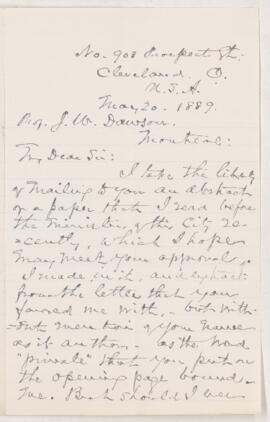 No. 908 Prospect St.
Cleveland. O.
U.S.A.
May 20. 1889.
Prof. J. W. Dawson.
Montreal:
My Dear Sir:
I take the liberty
of mailing to you an abstract
of a paper that I read before
the Ministers of this City re-
cently, which I hope
may meet your approval.
I made in it, an extract
from the letter that you
favored me with, - but with-
out mention of your name
as its author. - as the word
"private" that you put on
the opening page bound
me. But should I ever